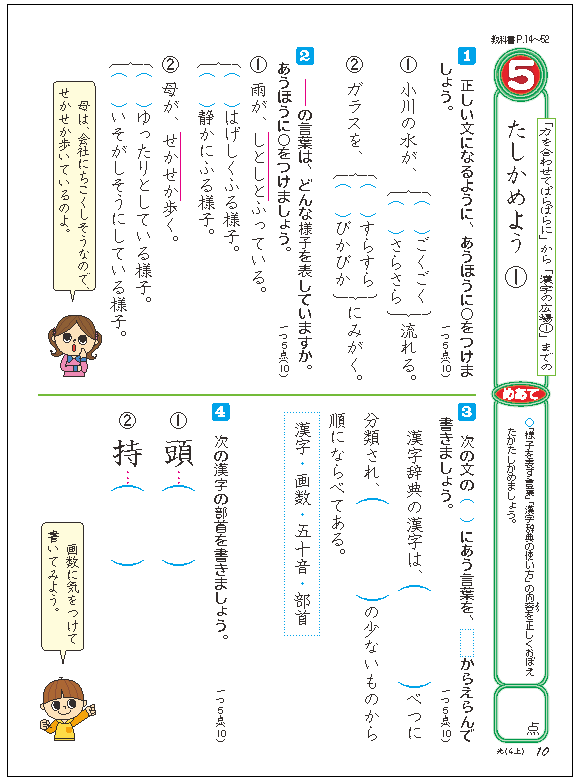 教科書P.14～52
5
「力を合わせてばらばらに」から「漢字の広場①」までの
たしかめよう ①
めあて
◇「様子を表す言葉」「漢字辞典の使い方」の内容を正しくおぼえ
たかたしかめましょう。
点
光(4上) 10
1 正しい文になるように、あうほうに○をつけま
しょう。
一つ5点(10)
① 小川の水が、
( )ごくごく
( )さらさら
流れる。
② ガラスを、
( )すらすら
( )ぴかぴか
にみがく。
2 ――の言葉は、どんな様子を表していますか。
あうほうに○をつけましょう。
一つ5点(10)
① 雨が、しとしとふっている。
( )はげしくふる様子。
( )静かにふる様子。
② 母が、せかせか歩く。
( )ゆったりとしている様子。
( )いそがしそうにしている様子。
母は、会社にちこくしそうなので、
せかせか歩いているのよ。
3 次の文の( )にあう言葉を、 からえらんで
書きましょう。
一つ5点(10)
漢字辞典の漢字は、( )べつに
分類され、( )の少ないものから
順にならべてある。
漢字・画数・五十音・部首
4 次の漢字の部首を書きましょう。
一つ5点(10)
① 頭…( )
② 持…( )
画数に気をつけて
書いてみよう。